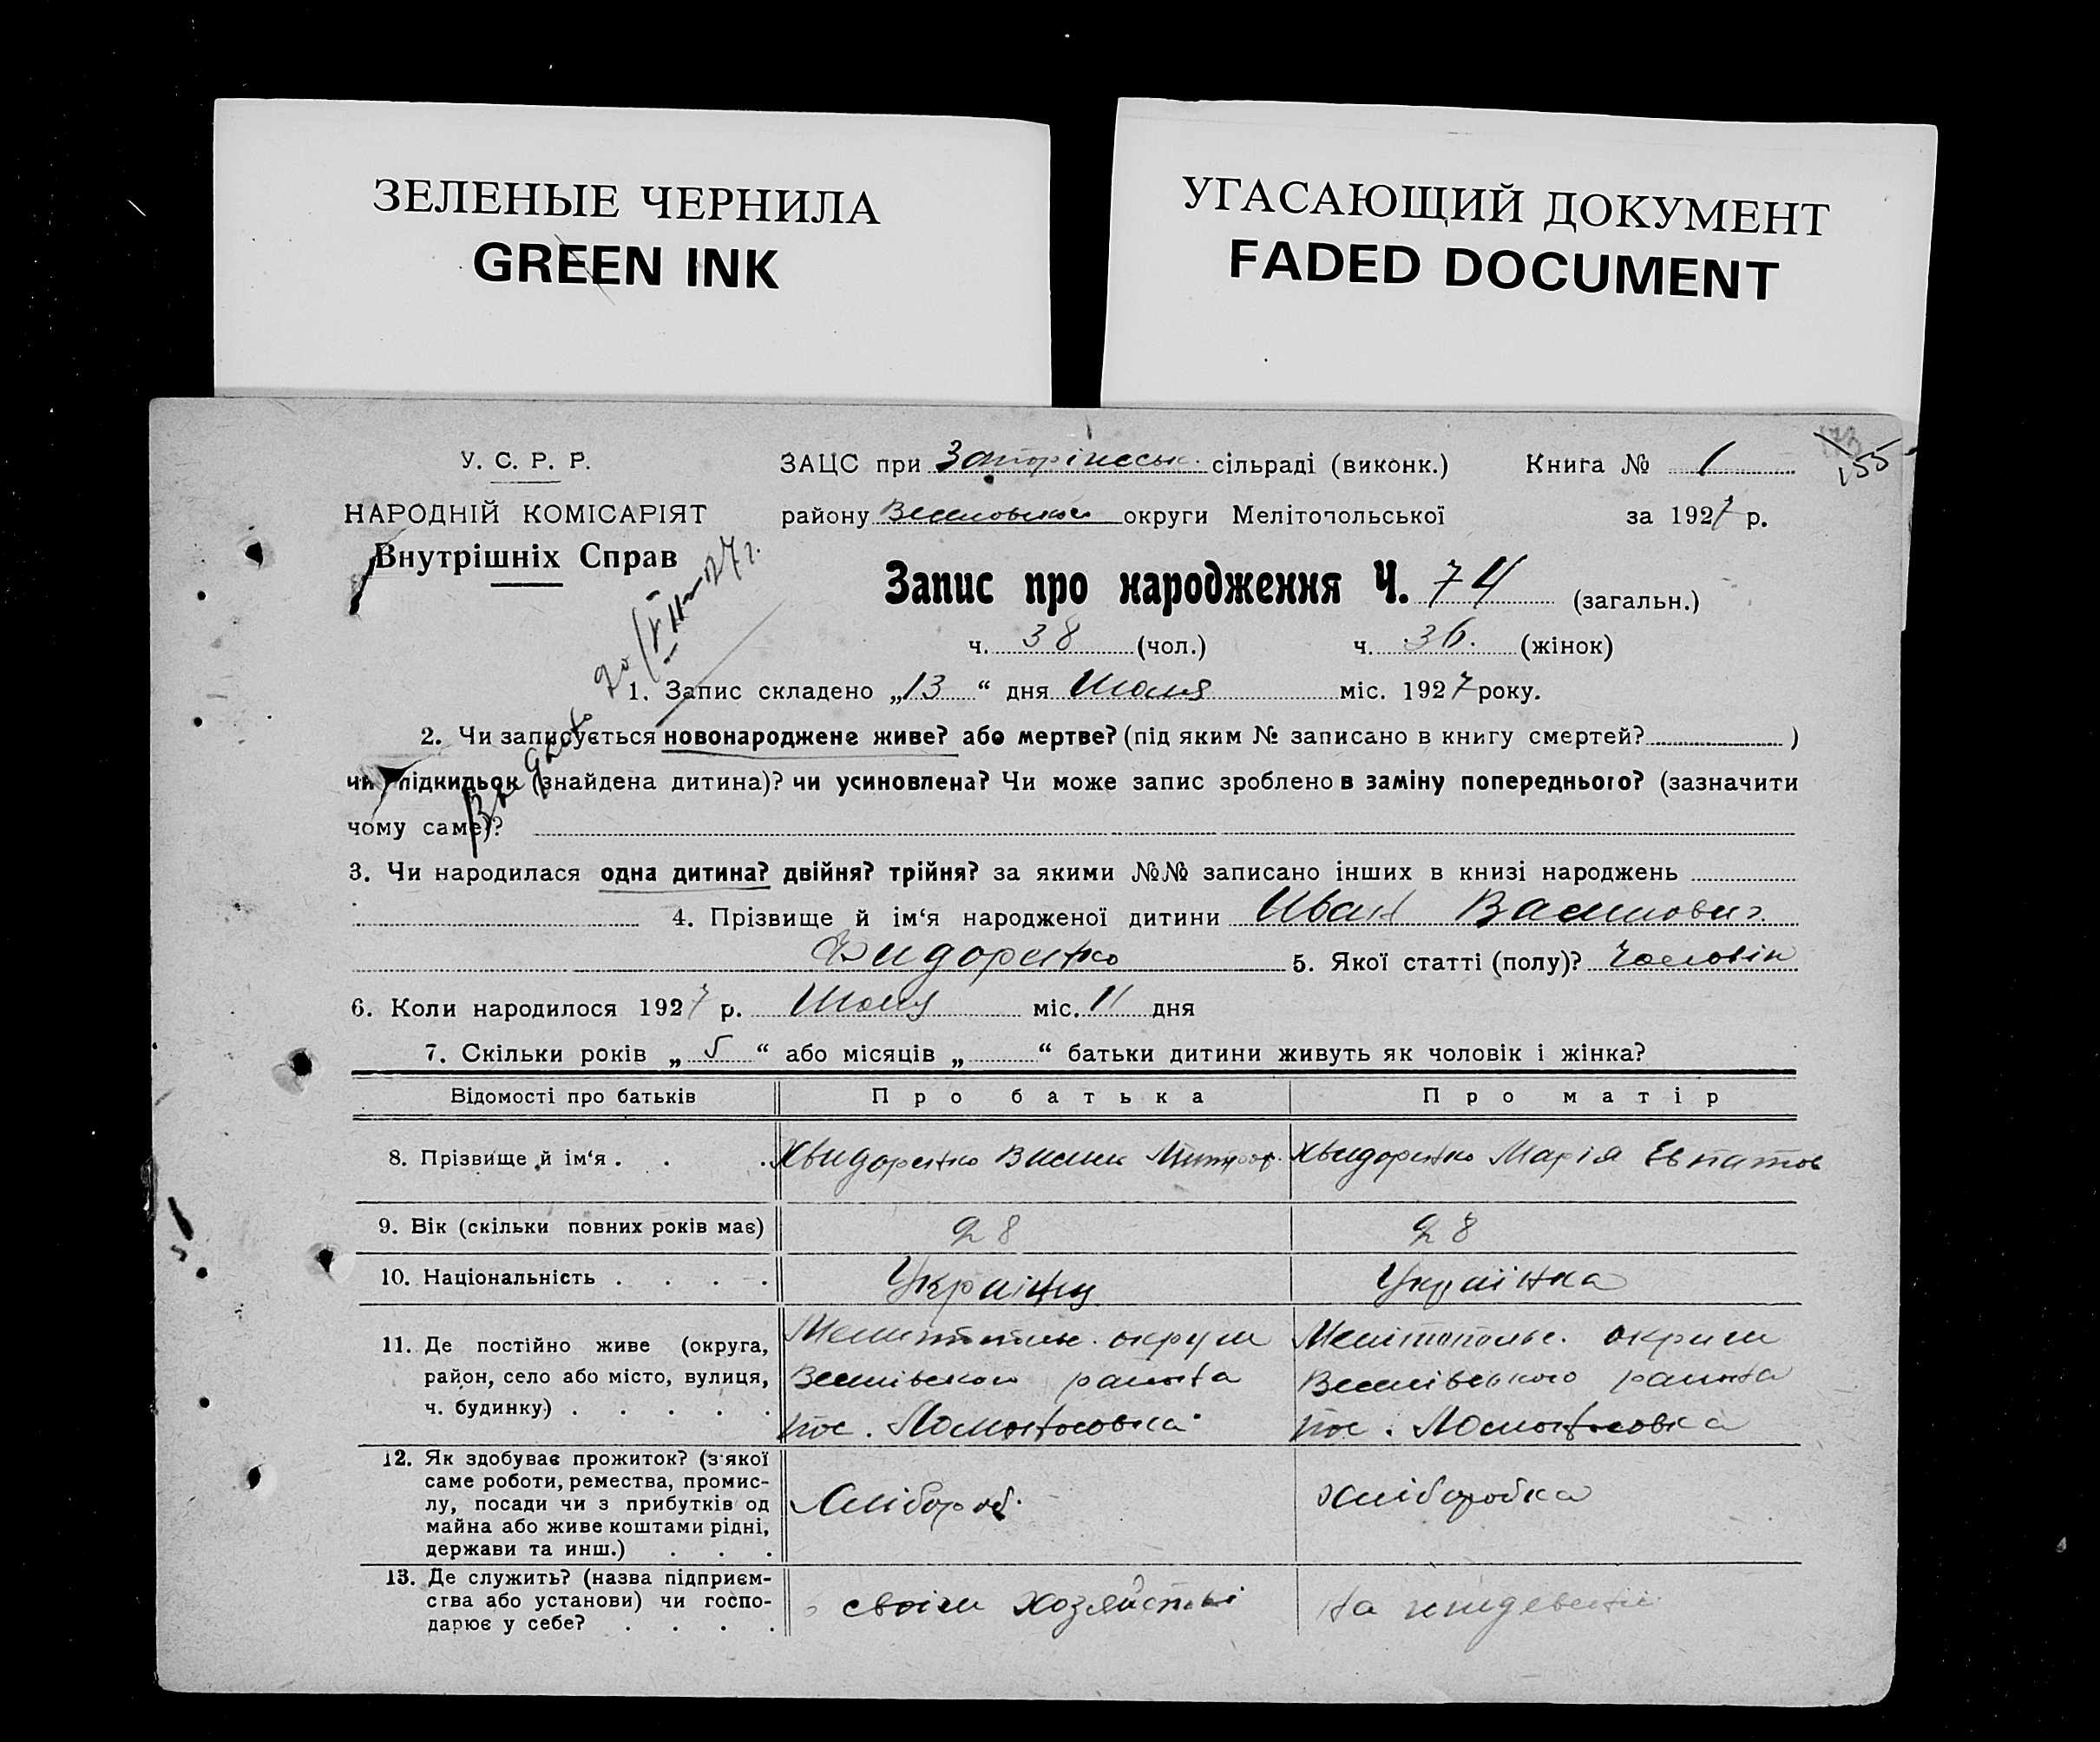 ЗЕЛЕНЫЕ ЧЕРНИЛА
GREEN INK
УГАСАЮЩИЙ ДОКУМЕНТ
FADED DOCUMENT
155
У. С. Р. Р.
НАРОДНІЙ КОМІСАРІЯТ
Внутрішніх Справ
ЗАЦС при сільраді (виконк.) Книга № 1
району округи Мелітопольської за 1927 р.
Запис про народження Ч. 74 (загальн.)
ч. 38 (чол.) ч. 36. (жінок)
20/VII-27 г.
1. Запис складено „13“ дня Июля міс. 1927 року.
2. Чи записується новонароджене живе? або мертве? (під яким № записано в книгу смертей? )
чи підкидьок (знайдена дитина)? чи усиновлена? Чи може запис зроблено в заміну попереднього? (зазначити
чому саме)?
3. Чи народилася одна дитина? двійня? трійня? за якими №№ записано інших в книзі народжень
4. Прізвище й ім‘я народженої дитини Иван Васильович
Фидоренко 5. Якої статті (полу)? Чоловік
6. Коли народилося 1927 р. Июля міс. 11 дня
7. Скільки років „5“ або місяців „ “ батьки дитини живуть як чоловік і жінка?
Відомості про батьків Про батька Про матір
8. Прізвище й ім‘я . . . Хвидоренко Васил Митроф. Хвидоренко Марія
9. Вік (скільки повних років має) 28 28
10. Національність . . . . Українц Українка
11. Де постійно живе (округа,
район, село або місто, вулиця,
ч. будинку) . . . . .
Мелитополь. округи
Веселівського района
пос. Ломоносовка
Мелітополь. округи
Веселівського района
пос. Ломоносовка
12. Як здобуває прожиток? (з якої
саме роботи, ремества, промис-
лу, посади чи з прибутків од
майна або живе коштами рідні,
держави та инш.) . . .
Хлібороб.
хліборобка
13. Де служить? (назва підприєм-
ства або установи) чи госпо-
дарює у себе? . . . .
своім хозяйстві
на